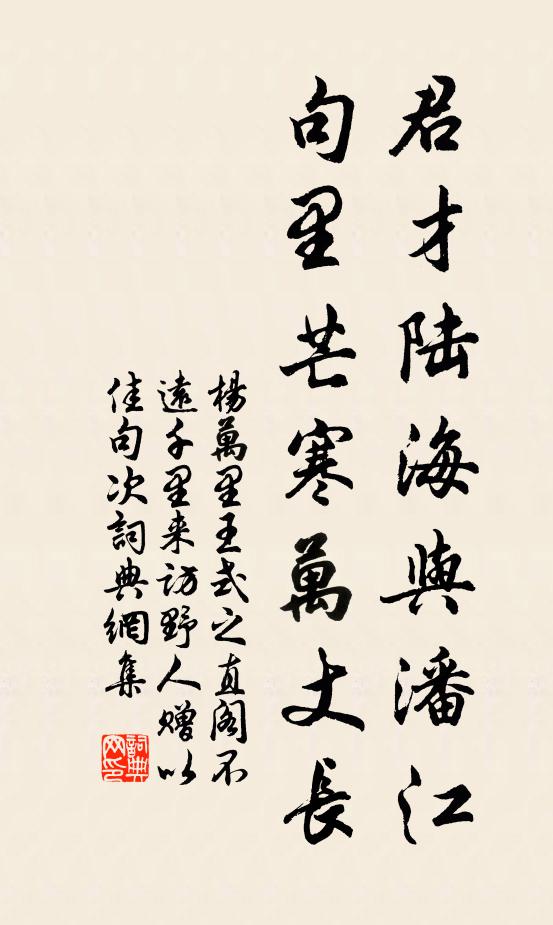 君才陆海與潘江
句里芒寒萬丈長
楊萬里王式之直閣不
遠千里来访野人赠以
佳句次詞典網集
詞典
网印